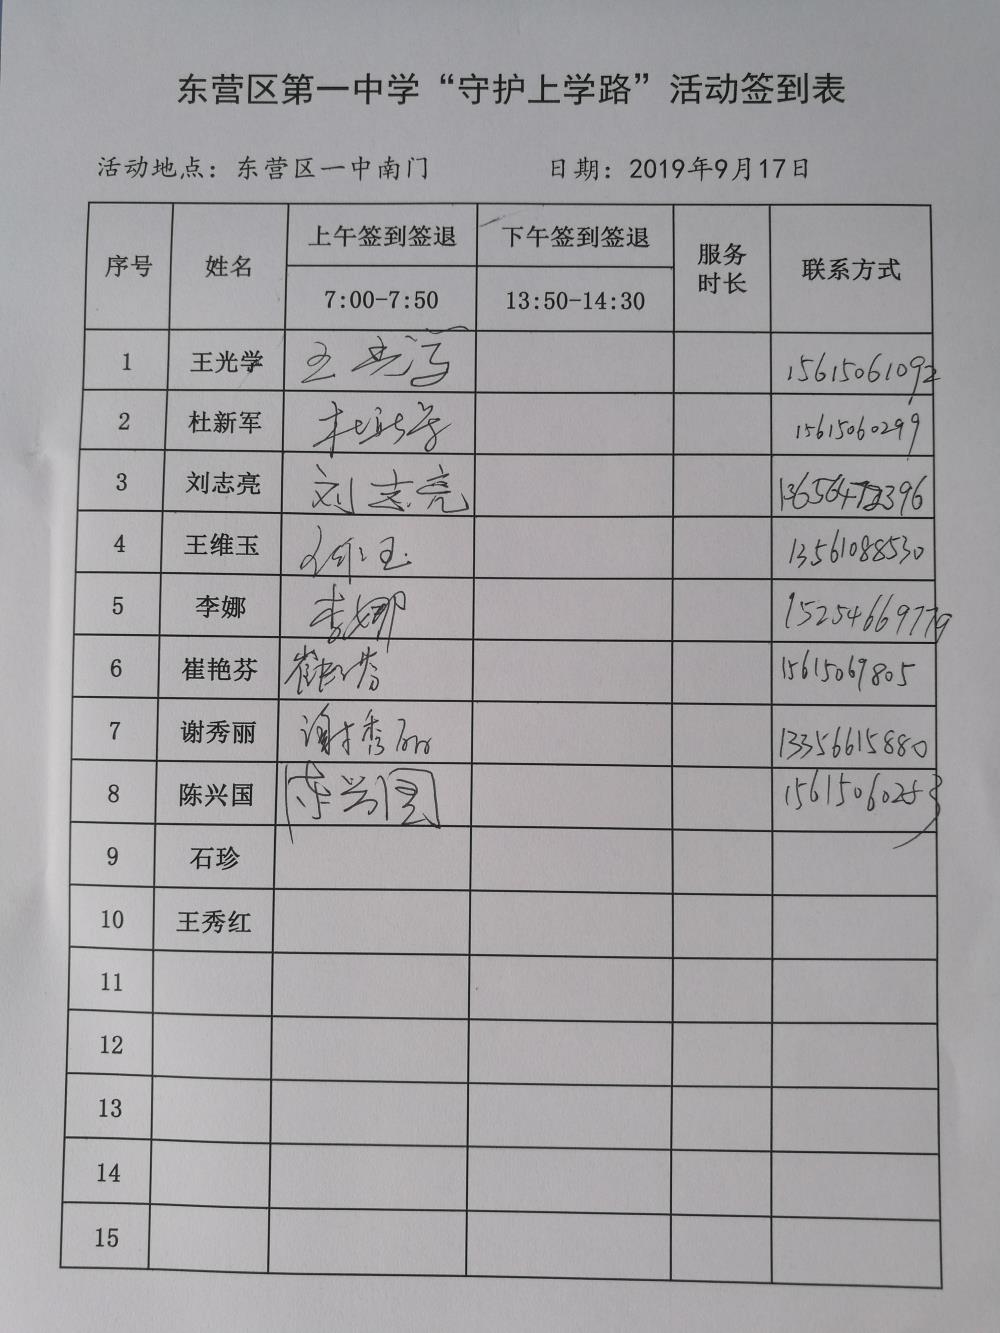 东营区第一中学“守护上学路”活动签到表
活动地点：东营区一中南门 日期：2019年9月17日
序号 姓名 上午签到签退 下午签到签退 服务时长 联系方式
7:00-7:50 13:50-14:30
1 王光学 王光学 15615061092
2 杜新军 杜新军 15615060299
3 刘志亮 刘志亮
4 王维玉 王维玉 13561088530
5 李娜 李娜 15254669779
6 崔艳芬 崔艳芬 15615069805
7 谢秀丽 谢秀丽 13356615880
8 陈兴国 陈兴国 15615060253
9 石珍
10 王秀红
11
12
13
14
15